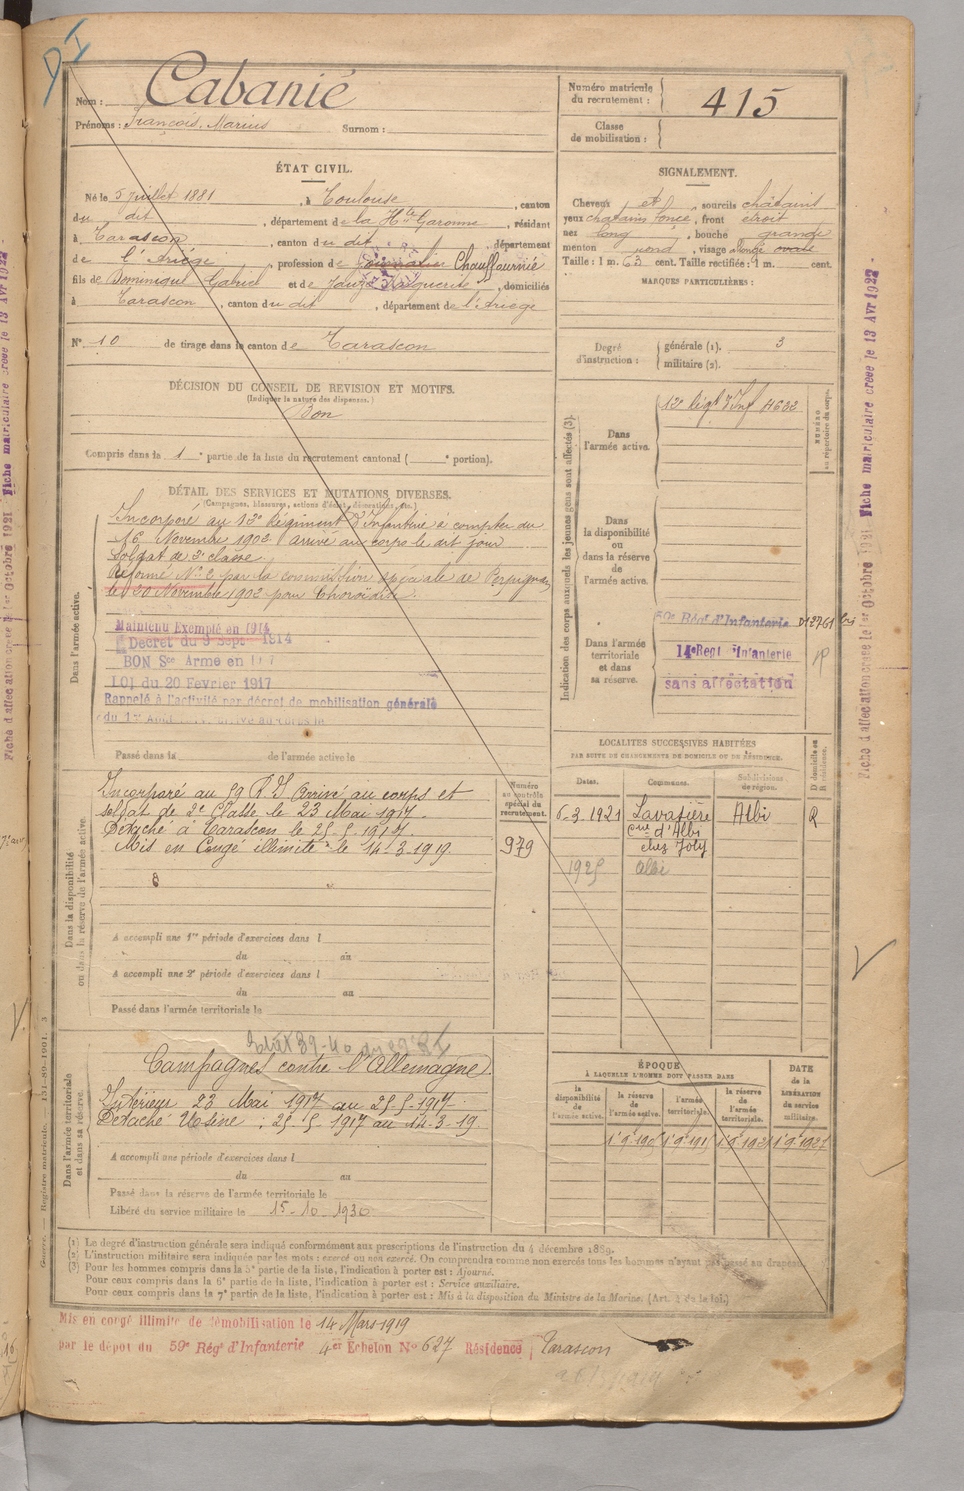 DI
Nom : Cabanié
Prénoms : François, Marius Surnom :
Numéro matricule du recrutement : 415
Classe de mobilisation :
ÉTAT CIVIL.
Né le 5 juillet 1881, à Toulouse, canton
du dit, département de la Hte Garonne, résidant
à Tarascon, canton du dit, département
de l'Ariège, profession de Chauffournié
fils de Dominique Gabriel et de Marguerite, domiciliés
à Tarascon, canton du dit, département de l'Ariège
N° 10 de tirage dans le canton de Tarascon
DÉCISION DU CONSEIL DE REVISION ET MOTIFS.
(Indiquer la nature des dispenses.)
Bon
Compris dans la 1e partie de la liste du recrutement cantonal ( e portion).
SIGNALEMENT.
Cheveux et sourcils châtains
yeux chatains foncé, front étroit
nez long, bouche grande
menton rond, visage ovale
Taille : 1 m. 63 cent. Taille rectifiée : 1 m. cent.
MARQUES PARTICULIÈRES :
Degré d'instruction : générale (1). 3
militaire (2).
Indication des corps auxquels les jeunes gens sont affectés (3).
NUMÉRO au répertoire du corps.
Dans l'armée active.
Dans la disponibilité ou dans la réserve de l'armée active.
Dans l'armée territoriale et dans sa réserve.
59e Régt d'Infanterie
14e Regt Infanterie
sans affectation
DÉTAIL DES SERVICES ET MUTATIONS DIVERSES.
(Campagnes, blessures, actions d'éclat, décorations, etc.)
Dans l'armée active.
Incorporé au 12e Régiment d'Infanterie à compter du
16 Novembre 1902 arrivé au corps le dit jour
Soldat de 2e classe.
Réformé N° 2 par la commission spéciale de Perpignan
le 20 Novembre 1902 pour Choroïdite.
Maintenu Exempté en 1914
Décret du 9 Sept 1914
BON Sce Armé en
LOI du 20 Fevrier 1917
Rappelé à l'activité par décret de mobilisation générale
Passé dans la de l'armée active le
LOCALITES SUCCESSIVES HABITÉES
PAR SUITE DE CHANGEMENTS DE DOMICILE OU DE RÉSIDENCE.
Dates. Communes. Subdivisions de région. D domicile ou R résidence.
6.3.1921 Lavazière cne d'Albi chez Joly Albi R
1925 Albi
Dans la disponibilité ou dans la réserve de l'armée active.
Numéro au contrôle spécial du recrutement.
979
Incorporé au 59 R I Arrivé au corps et
soldat de 2e Classe le 23 Mai 1917.
Détaché à Tarascon le 25.5.1917.
Mis en Congé illimité le 14-3-1919.
A accompli une 1re période d'exercices dans l
du au
A accompli une 2e période d'exercices dans l
du au
Passé dans l'armée territoriale le
Dans l'armée territoriale et dans sa réserve.
Campagnes contre l'Allemagne.
Intérieur 23 Mai 1917 au 25 5 1917
Détaché Usine. 25 5 1917 au 14-3-19.
A accompli une période d'exercices dans l
du au
Passé dans la réserve de l'armée territoriale le
Libéré du service militaire le 15-10-1930
ÉPOQUE
À LAQUELLE L'HOMME DOIT PASSER DANS
la disponibilité de l'armée active.
la réserve de l'armée active.
l'armée territoriale.
la réserve de l'armée territoriale.
DATE de la LIBÉRATION du service militaire.
(1) Le degré d'instruction générale sera indiqué conformément aux prescriptions de l'instruction du 4 décembre 1889.
(2) L'instruction militaire sera indiquée par les mots : exercé ou non exercé. On comprendra comme non exercés tous les hommes n'ayant pas passé au drapeau.
(3) Pour les hommes compris dans la 5e partie de la liste, l'indication à porter est : Ajourné.
Pour ceux compris dans la 6e partie de la liste, l'indication à porter est : Service auxiliaire.
Pour ceux compris dans la 7e partie de la liste, l'indication à porter est : Mis à la disposition du Ministre de la Marine. (Art. 4 de la loi.)
Mis en congé illimité de démobilisation le 14 Mars 1919
par le dépot du 59e Régt d'Infanterie 4e Echelon N° 627 Résidence Tarascon
Guerre. — Registre matricule. — 131-89-1901.
Fiche d'affectation créée le 1er Octobre 1921 Fiche matriculaire créée le 13 Avr 1922